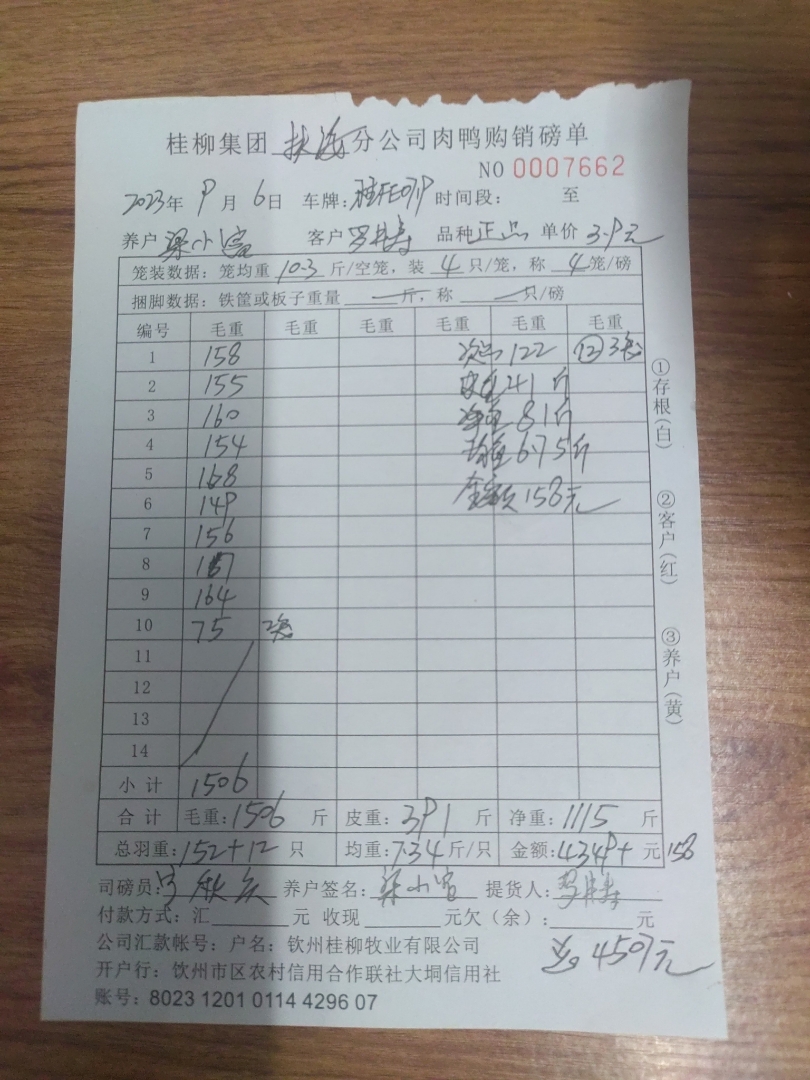 桂柳集团 扶海 分公司肉鸭购销磅单
NO 0007662
2023年 9月 6日 车牌: 时间段: 至
养户 梁小富 客户 品种 正品 单价 3.9元
笼装数据: 笼均重 10.3 斤/空笼, 装 4 只/笼, 称 4 笼/磅
捆脚数据: 铁筐或板子重量 — 斤, 称 — 只/磅
编号 毛重 毛重 毛重 毛重 毛重 毛重
1 158 次品 122 ⑫ 3笼
2 155 皮重 41斤
3 160 净重 81斤
4 154 均重 6.75斤
5 168 金额 158元
6 149
7 156
8 167
9 164
10 75 2笼
11
12
13
14
小计 1506
合计 毛重: 1506 斤 皮重: 391 斤 净重: 1115 斤
总羽重: 152+12 只 均重: 7.34 斤/只 金额: 4349+ 元 158
司磅员: 养户签名: 梁小富 提货人:
付款方式: 汇 元 收现 元欠(余): 元
公司汇款帐号: 户名: 钦州桂柳牧业有限公司
共 4507元
开户行: 钦州市区农村信用合作联社大垌信用社
账号: 8023 1201 0114 4296 07
①存根(白) ②客户(红) ③养户(黄)